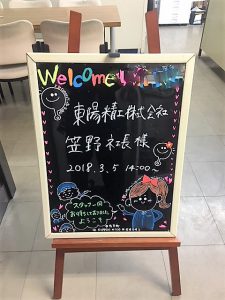 Welcome!
東陽精工株式会社
笠野社長様
2018.3.5 14:00～
スタッフ一同
お待ちしておりました
ようこそ